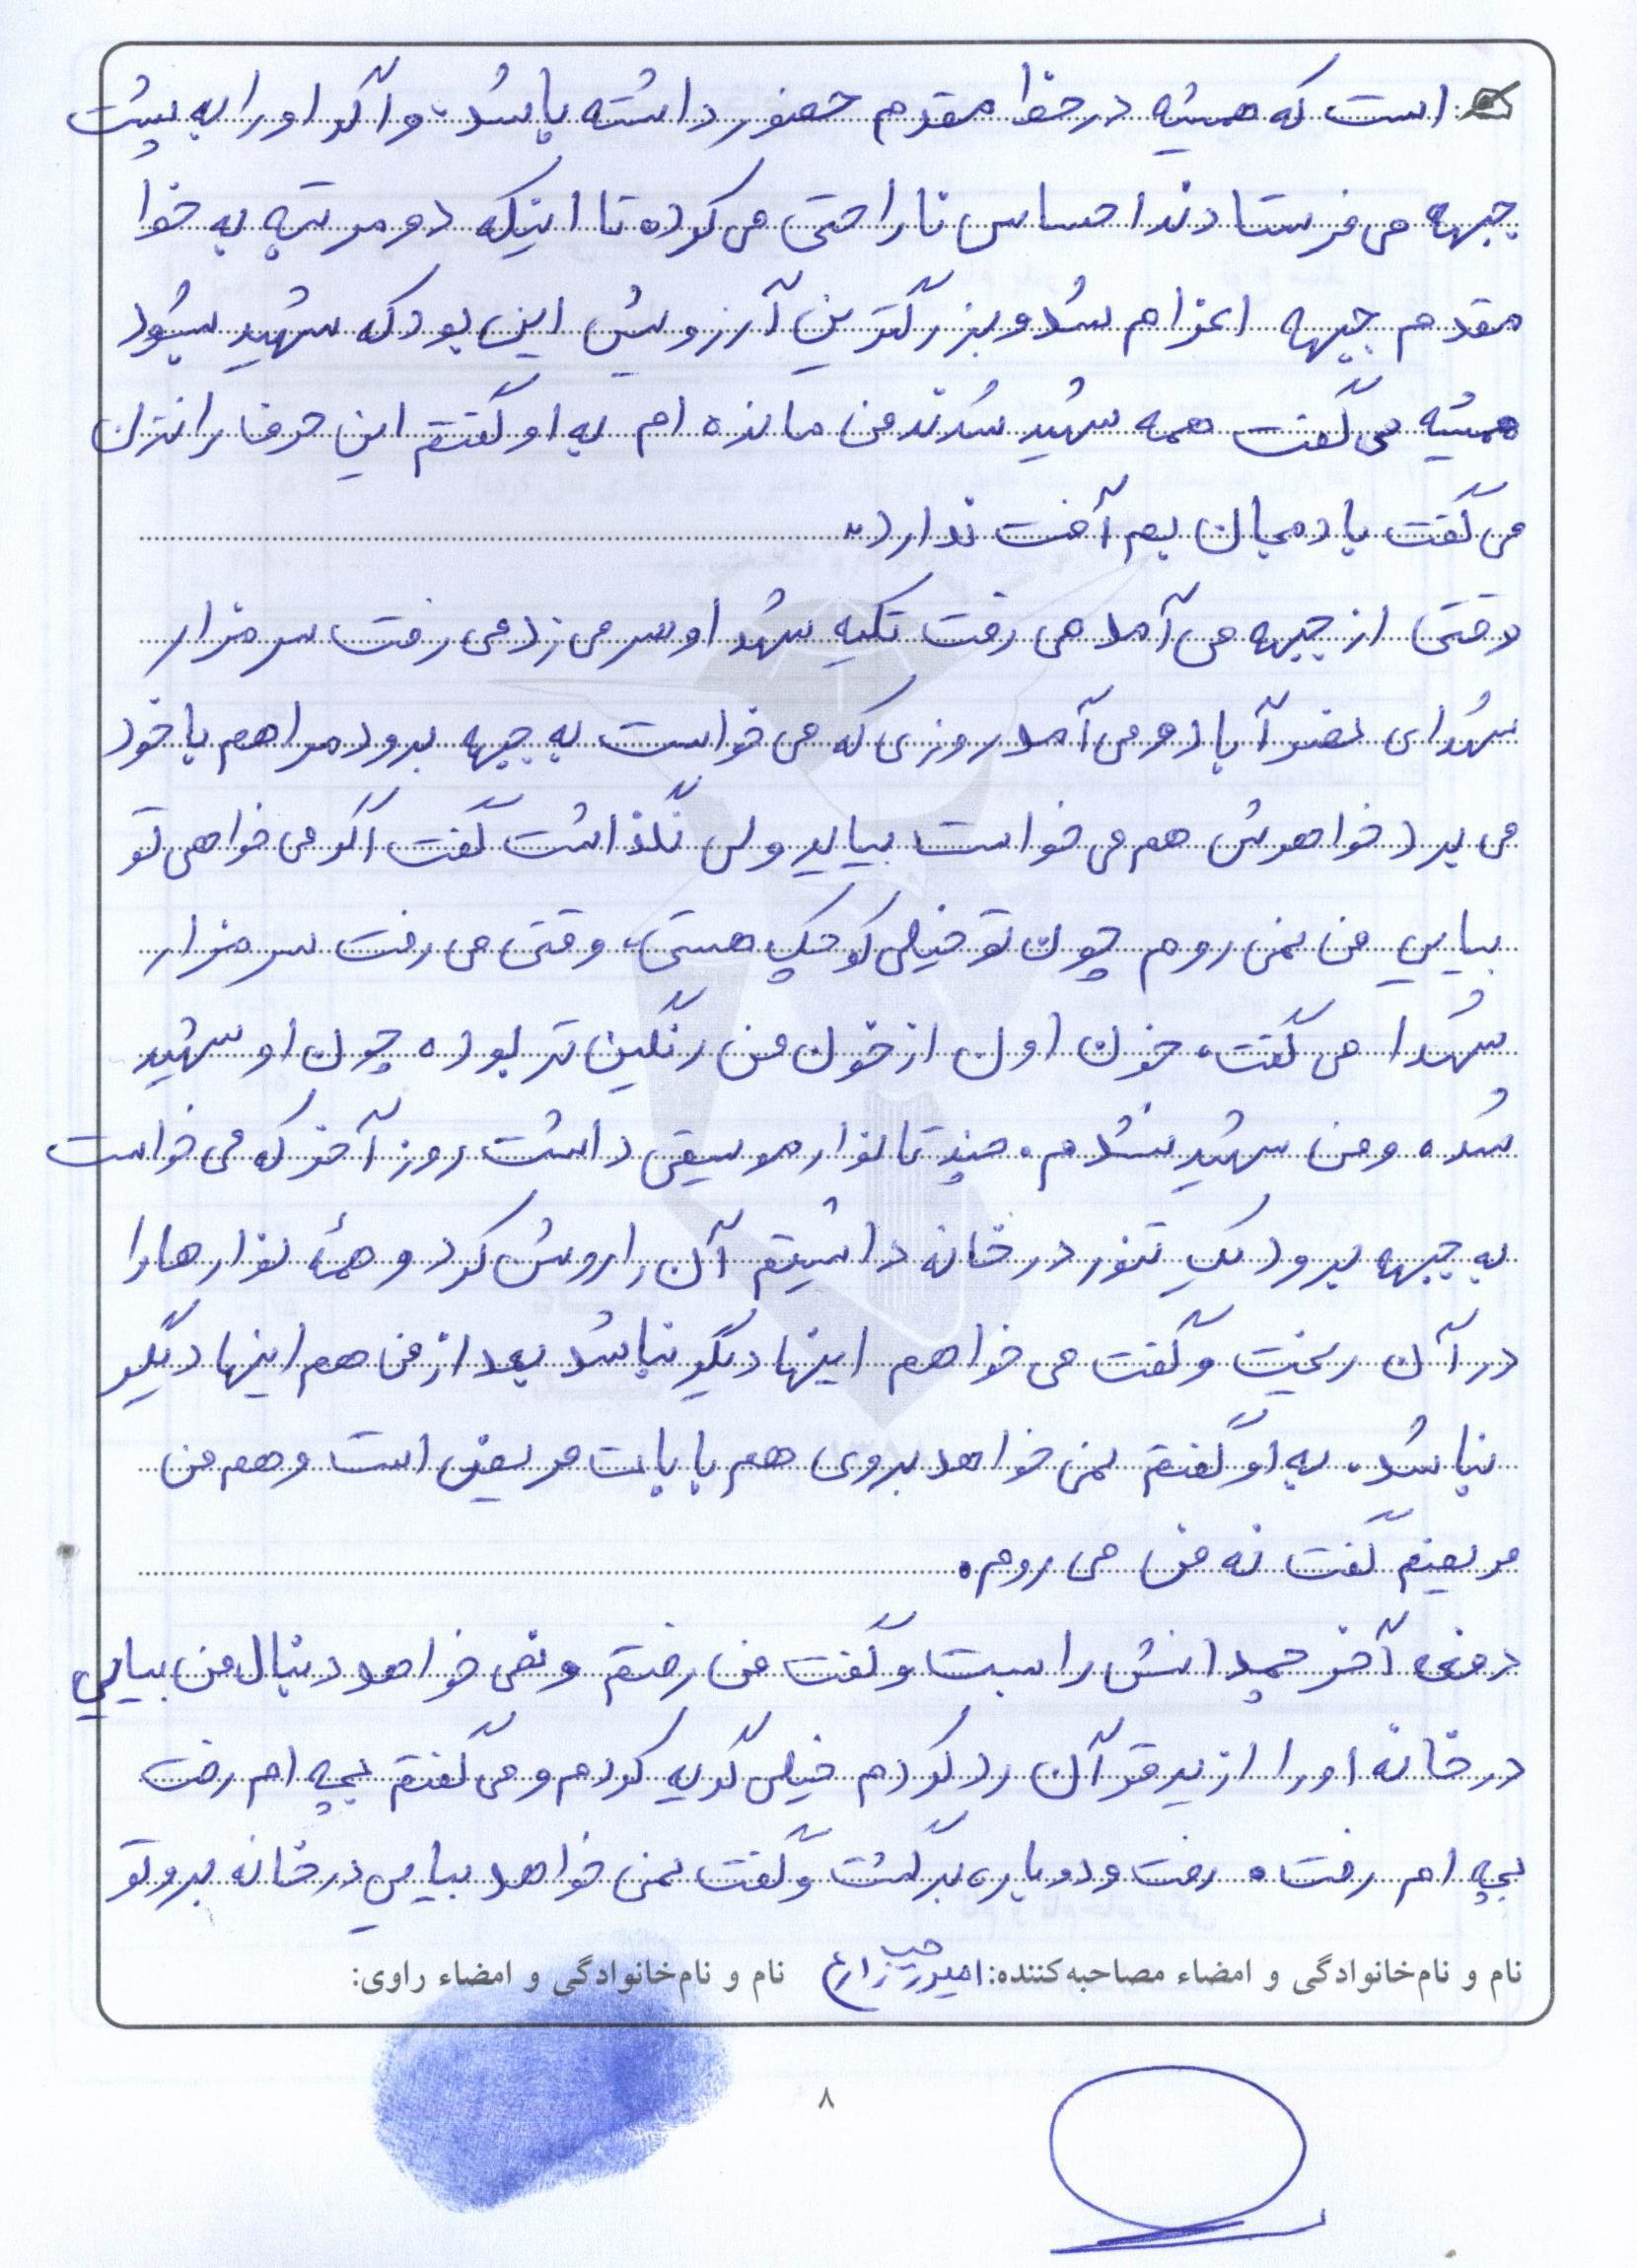 است که همیشه در خط مقدم حضور داشته باشد. و اگر او را به پشت
جبهه می‌فرستادند احساس ناراحتی می‌کرده تا اینکه دو مرتبه به خط
مقدم جبهه اعزام شد و بزرگترین آرزویش این بود که شهید بشود
همیشه می‌گفت همه شهید شدند من مانده ام به او گفتم این حرف را نزن
می‌گفت بادمجان بم آفت ندارد.
وقتی از جبهه می‌آمد می رفت تکیه شهدا و سر می زد می رفت سر مزار
شهدای آباد و می‌آمد روزی که می خواست به جبهه برود مرا هم با خود
می برد خواهرش هم می خواست بیاید ولی نگذاشت گفت اگر می خواهی تو
بیایی من نمی روم چون تو خیلی کوچک هستی، وقتی می رفت سر مزار
شهدا می گفت، خون اون از خون من رنگین تر بوده چون او شهید
شده و من شهید نشدم. چند تا نوار موسیقی داشت روز آخر که می خواست
به جبهه برود یک تنور در خانه داشتیم آن را روشن کرد و همۀ نوارها را
در آن ریخت و گفت می خواهم اینها دیگر نباشد بعد از من هم اینها دیگر
نباشد. به او گفتم نمی خواهد بروی هم بابات مریض است و هم من
مریضم گفت نه من می روم.
دفعه آخر چمدانش را بست و گفت من رفتم و نمی خواهد دنبال من بیایی
در خانه او را از زیر قرآن رد کردم خیلی گریه کردم و می گفتم بچه ام رفت
بچه ام رفت. رفت و دوباره برگشت و گفت نمی خواهد بیایی در خانه برو تو
نام و نام‌خانوادگی و امضاء مصاحبه‌کننده: نام و نام‌خانوادگی و امضاء راوی:
۸